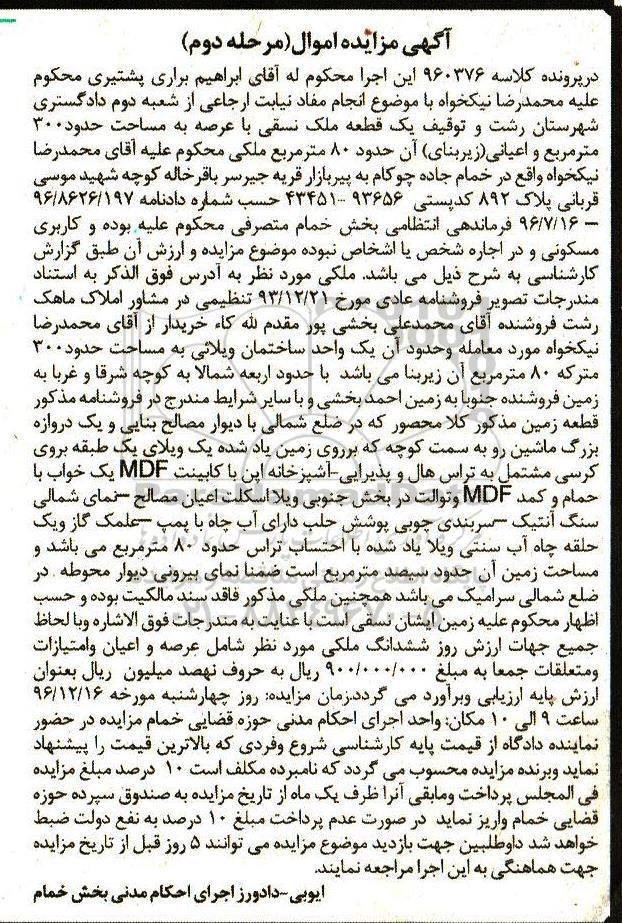 آگهی مزایده اموال(مرحله دوم)
درپرونده کلاسه ۹۶۰۳۷۶ این اجرا محکوم له آقای ابراهیم براری پشتیری محکوم
علیه محمدرضا نیکخواه با موضوع انجام مفاد نیابت ارجاعی از شعبه دوم دادگستری
شهرستان رشت و توقیف یک قطعه ملک نسقی با عرصه به مساحت حدود۳۰۰
مترمربع و اعیانی(زیربنای) آن حدود ۸۰ مترمربع ملکی محکوم علیه آقای محمدرضا
نیکخواه واقع در خمام جاده چوکام به پیربازار قریه جیرسر باقرخاله کوچه شهید موسی
قربانی پلاک ۸۹۲ کدپستی ۹۳۶۵۶ -۴۳۴۵۱ حسب شماره دادنامه ۹۶/۸۶۲۶/۱۹۷
– ۹۶/۷/۱۶ فرماندهی انتظامی بخش خمام متصرفی محکوم علیه بوده و کاربری
مسکونی و در اجاره شخص یا اشخاص نبوده موضوع مزایده و ارزش آن طبق گزارش
کارشناسی به شرح ذیل می باشد. ملکی مورد نظر به آدرس فوق الذکر به استناد
مندرجات تصویر فروشنامه عادی مورخ ۹۳/۱۲/۲۱ تنظیمی در مشاور املاک ماهک
رشت فروشنده آقای محمدعلی بخشی پور مقدم لله کاء خریدار از آقای محمدرضا
نیکخواه مورد معامله وحدود آن یک واحد ساختمان ویلائی به مساحت حدود۳۰۰
مترکه ۸۰ مترمربع آن زیربنا می باشد با حدود اربعه شمالا به کوچه شرقا و غربا به
زمین فروشنده جنوبا به زمین احمد بخشی و با سایر شرایط مندرج در فروشنامه مذکور
قطعه زمین مذکور کلا محصور که در ضلع شمالی با دیوار مصالح بنایی و یک دروازه
بزرگ ماشین رو به سمت کوچه که برروی زمین یاد شده یک ویلای یک طبقه بروی
کرسی مشتمل به تراس هال و پذیرایی-آشپزخانه اپن با کابینت MDF یک خواب با
حمام و کمد MDF وتوالت در بخش جنوبی ویلا اسکلت اعیان مصالح –نمای شمالی
سنگ آنتیک –سربندی چوبی پوشش حلب دارای آب چاه با پمپ –علمک گاز ویک
حلقه چاه آب سنتی ویلا یاد شده با احتساب تراس حدود ۸۰ مترمربع می باشد و
مساحت زمین آن حدود سیصد مترمربع است ضمنا نمای بیرونی دیوار محوطه در
ضلع شمالی سرامیک می باشد همچنین ملکی مذکور فاقد سند مالکیت بوده و حسب
اظهار محکوم علیه زمین ایشان نسقی است با عنایت به مندرجات فوق الاشاره وبا لحاظ
جمیع جهات ارزش روز ششدانگ ملکی مورد نظر شامل عرصه و اعیان وامتیازات
ومتعلقات جمعا به مبلغ ۹۰۰/۰۰۰/۰۰۰ ریال به حروف نهصد میلیون ریال بعنوان
ارزش پایه ارزیابی وبرآورد می گردد.زمان مزایده: روز چهارشنبه مورخه ۹۶/۱۲/۱۶
ساعت ۹ الی ۱۰ مکان: واحد اجرای احکام مدنی حوزه قضایی خمام مزایده در حضور
نماینده دادگاه از قیمت پایه کارشناسی شروع وفردی که بالاترین قیمت را پیشنهاد
نماید وبرنده مزایده محسوب می گردد که نامبرده مکلف است ۱۰ درصد مبلغ مزایده
فی المجلس پرداخت ومابقی آنرا ظرف یک ماه از تاریخ مزایده به صندوق سپرده حوزه
قضایی خمام واریز نماید در صورت عدم پرداخت مبلغ ۱۰ درصد به نفع دولت ضبط
خواهد شد داوطلبین جهت بازدید موضوع مزایده می توانند ۵ روز قبل از تاریخ مزایده
جهت هماهنگی به این اجرا مراجعه نمایند.
ایوبی-دادورز اجرای احکام مدنی بخش خمام